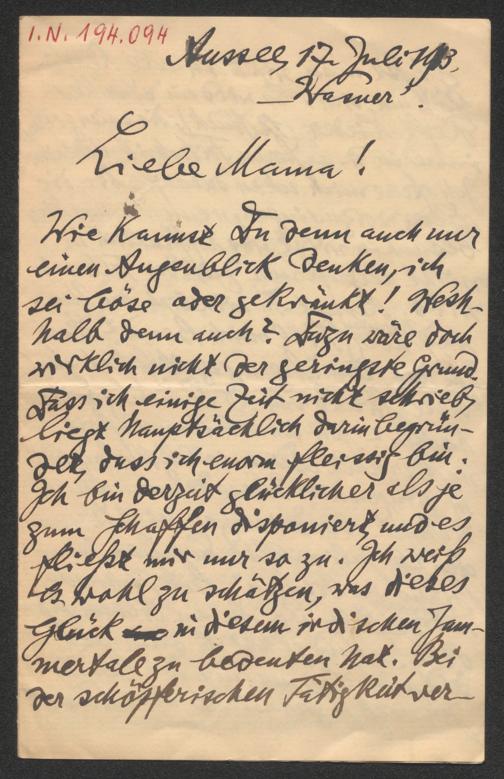 I.N. 194.094
Aussee, 17. Juli 1913.
Wasner!
Liebe Mama!
Wie kannst Du denn auch nur
einen Augenblick denken, ich
sei böse oder gekränkt! Wesh-
halb denn auch? Dazu wäre doch
wirklich nicht der geringste Grund.
Dass ich einige Zeit nicht schrieb,
liegt hauptsächlich darin begrün-
det, dass ich enorm fleissig bin.
Ich bin derzeit glücklicher als je
zum Schaffen disponiert, und es
fließt mir nur so zu. Ich weiß
es wohl zu schätzen, was dieses
Glück in diesem irdischen Jam-
mertale zu bedeuten hat. Bei
der schöpferischen Tätigkeit ver-